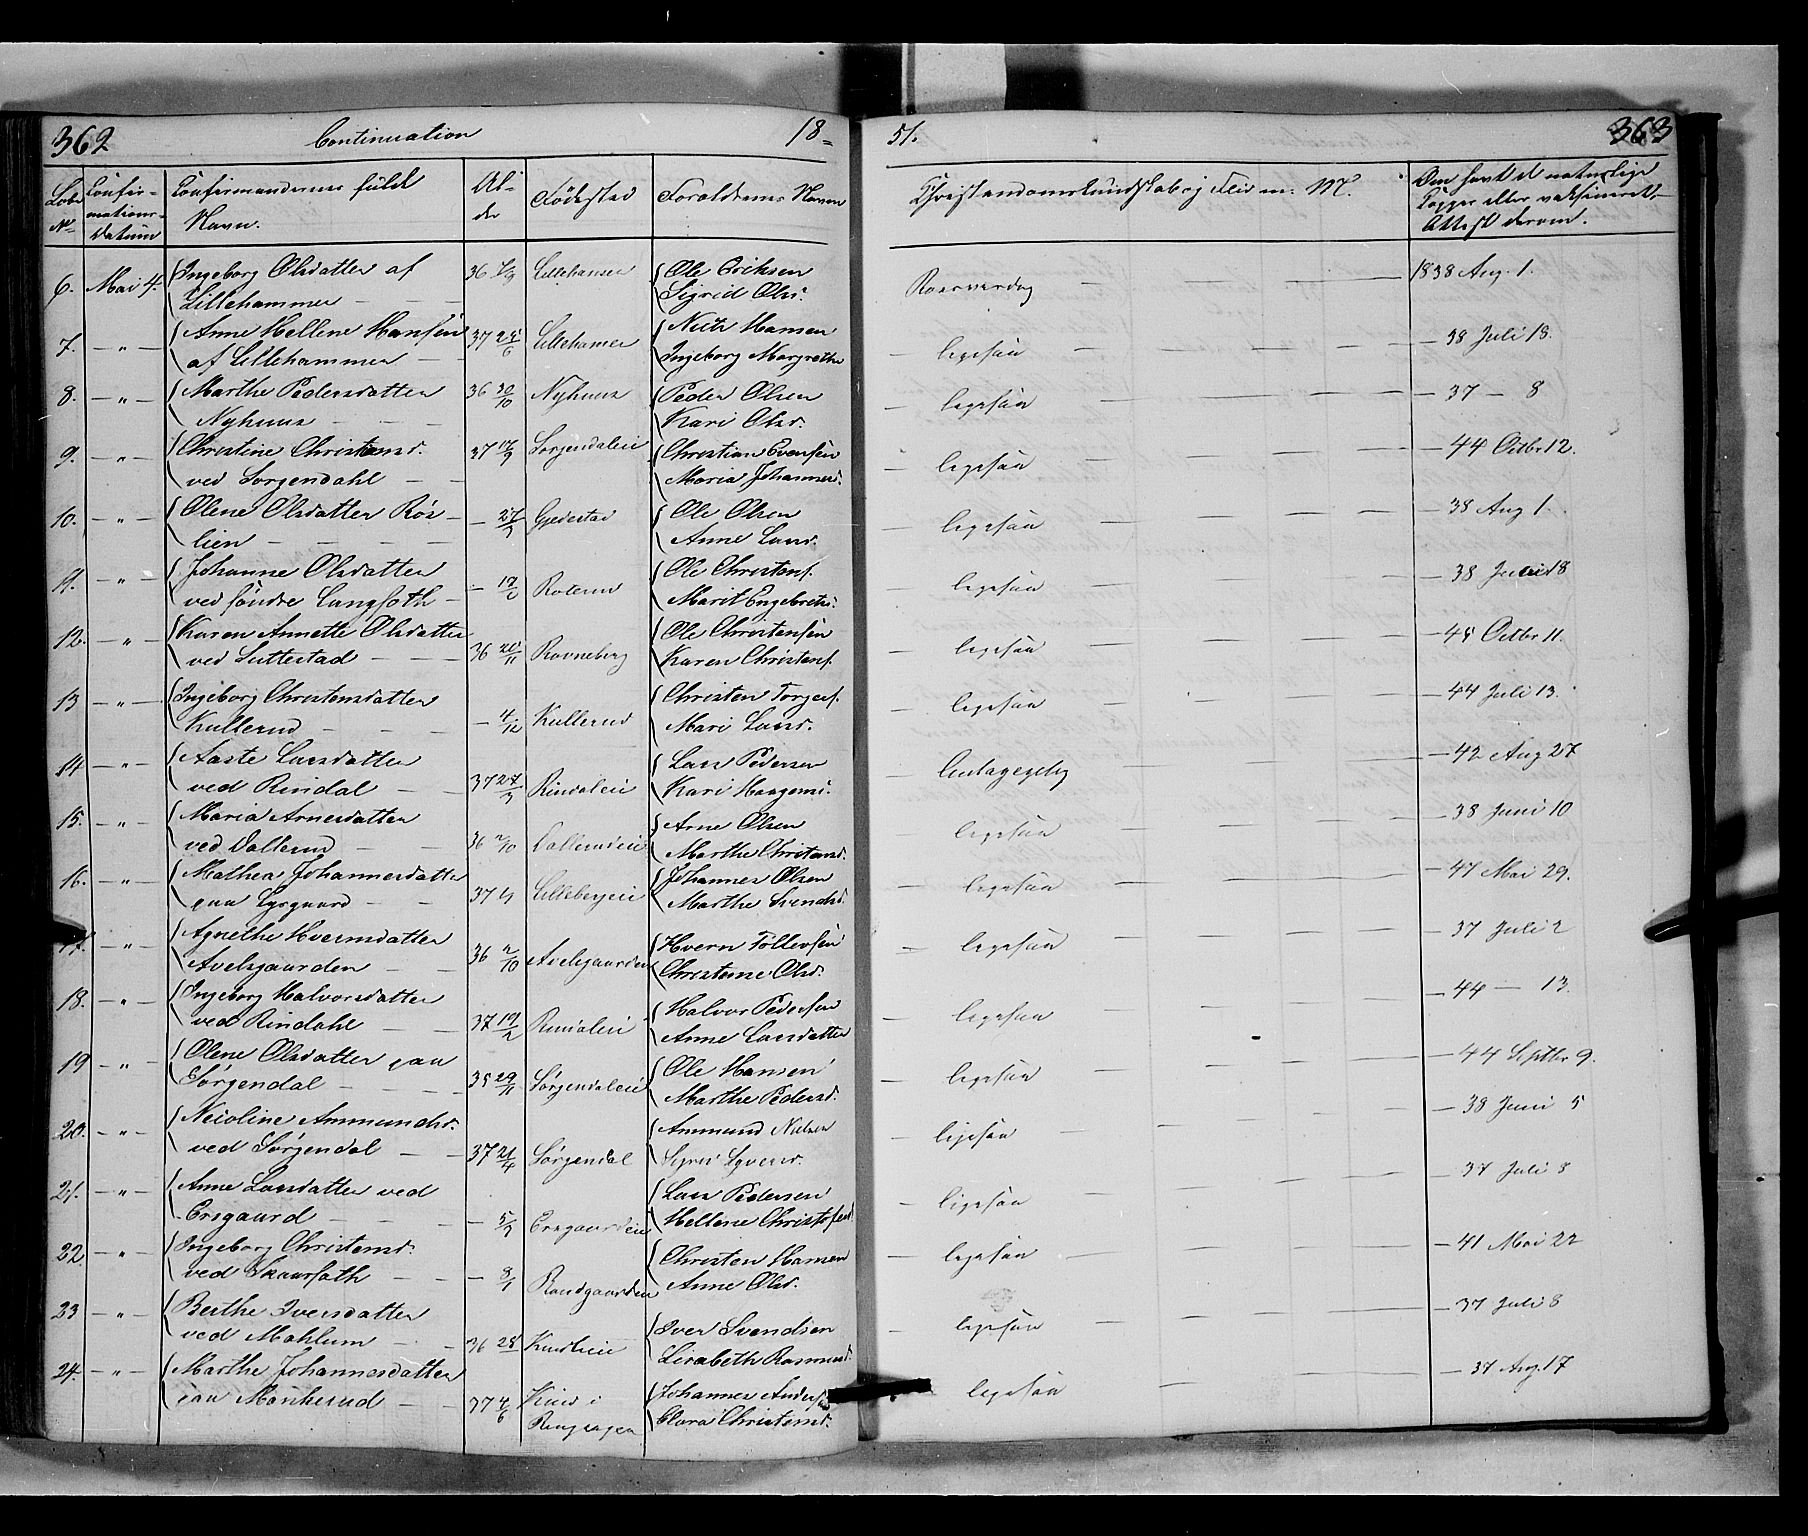 362 Continuation 18-
51. 363
Løbe No
Confir-
mations-
datum
Confirmandernes fulde
Navn.
Al-
der
Fødested
Forældrenes Navne
Christendomskundskab og Flid m: M.
Den havt de naturlige
Kopper eller vaksineret,
Attest derom.
6. Mai 4. Ingeborg Olsdatter af 36 Lillehamer Ole Eriksen 1838 Aug. 1.
Lillehammer Sigrid Olsd. Roesværdig
7. " Anne Hellene Hansen 37 24/6 Lillehamer Niels Hansen ligesaa 38 Juli 18.
af Lillehammer Ingeborg Margrethe
8. " Marthe Pedersdatter 36 30/10 Nyhuus Peder Olsen ligesaa 37 — 8
Nyhuus Kari Olsd.
9. " Christine Christensd. 37 17/9 Sorgendaleie Christian Evensen ligesaa 44 Octbr 12.
ved Sorgendahl Maria Johannesd.
10. " Olene Olsdatter Røs- — 27/3 Gjedestad Ole Olsen ligesaa 38 Aug 1.
lien Anne Larsd.
11. " Johanne Olsdatter Roterud Ole Christens. ligesaa 38 Juli 18
ved søndre Langseth Marit Engebretsd.
12. " Karen Annette Olsdatter 36 20/11 Rovneberg Ole Christensen ligesaa 45 Octbr 11.
ved Suttestad Karen Christens.
13 " Ingeborg Christensdatter — 4/12 Kullerud Christen Torgers. ligesaa 44 Juli 13.
Kullerud Mari Larsd.
14 " Aaste Larsdatter 37 27/3 Rindaleie Lars Pedersen Antagegelig 42 Aug 27
ved Rindal Kari Haagensd.
15. " Maria Arnesdatter 36 2/10 Dallerudeie Arne Olsen ligesaa 38 Juni 10
ved Dallerud Marthe Christensd.
16. " Mathea Johannesdatter 37 Lillebergeie Johannes Olsen ligesaa 47 Mai 29.
paa Lysgaard Marthe Svendsd.
17. " Agnethe Hvernsdatter 36 2/10 Avelsgaarden Hvern Tollevsen ligesaa 37 Juli 2
Avelsgaarden Christine Olsd.
18. " Ingeborg Halvorsdatter 37 19/2 Rindaleie Halvor Pedersen ligesaa 44 — 13.
ved Rindahl Anne Larsdatter
19 " Olene Olsdatter paa 35 29/11 Sørgendaleie Ole Hansen ligesaa 44 Septbr 9.
Sørgendal Marthe Pedersd.
20. " Nicoline Ammundsd. 37 21/4 Sørgendal Ammund Nielsen ligesaa 38 Juni 5
ved Sørgendal Sigrid Syversd.
21. " Anne Larsdatter ved — 5/3 Ersgaardeie Lars Pedersen ligesaa 37 Juli 8
Ersgaard Hellene Christofersd.
22. " Ingeborg Christensd. — 8/1 Roudgaarden Christen Hansen ligesaa 41 Mai 22
ved Skaarseth Anne Olsd.
23 " Berthe Iversdatter 36 28 Kindlieie Iver Svendsen ligesaa 37 Juli 8
ved Mæhlum Lisabeth Rasmusd.
24. " Marthe Johannesdatter 37 4/6 Kind i Johannes Anders. ligesaa 37 Aug. 17
paa Mankerud Ringsager Clara Christensd.